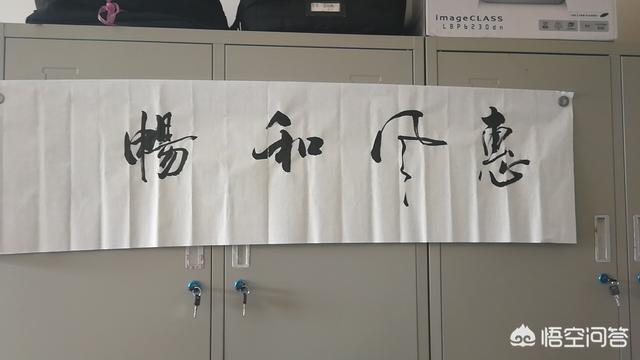 imageCLASS
LBP6230dn
惠风和暢
悟空问答